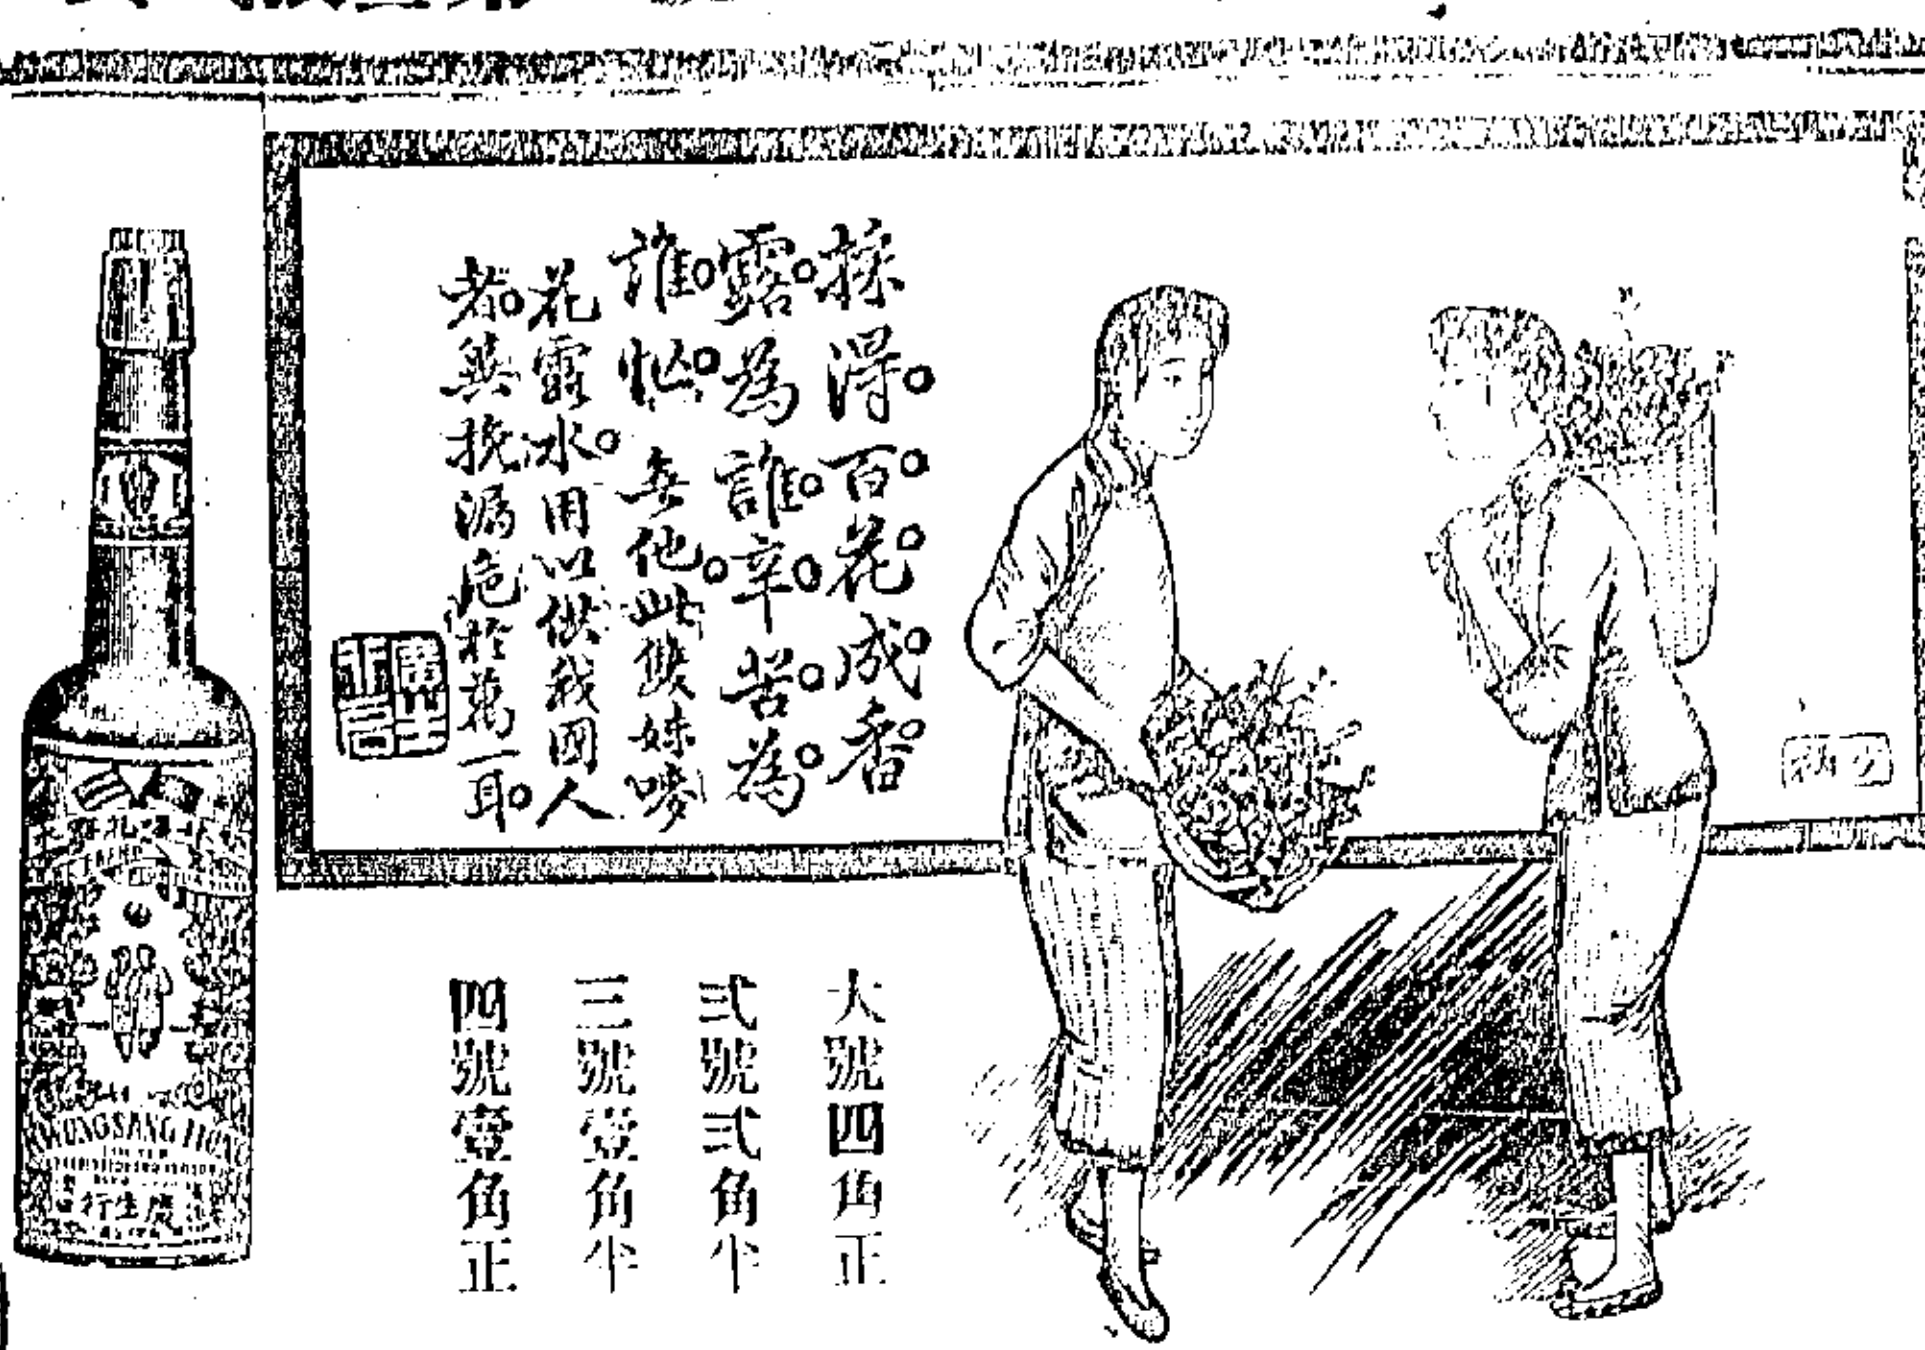 採得百花成香
露為誰辛苦為
誰忙無他此雙妹嘜
花露水用以供我國人
者與挽漏卮於萬一耳
大號四角正
弍號弍角半
三號壹角半
四號壹角正
KWONG SANG HONG
行生廣